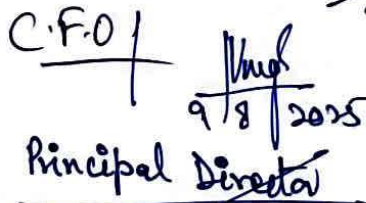 C.F.O
9/8/2025
Principal Director